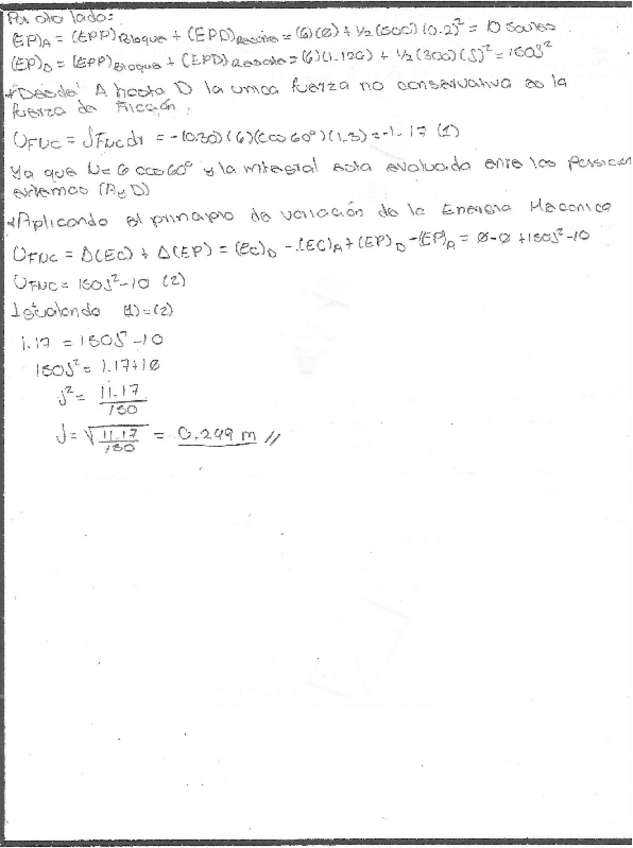 Por otro lado:
(EP)A = (EPP)Bloque + (EPD)Resorte = (6)(0) + 1/2 (500) (0.2)² = 10 Joules
(EP)D = (EPP)Bloque + (EPD)Resorte = (6)(1.126) + 1/2 (300) (S)² = 150S²
*Desde A hasta D la unica fuerza no conservativa es la
fuerza de Fricción.
UFNC = ∫FNC dr = -(0.30) (6) (cos 60°) (1.3) = -1.17 (1)
Ya que N = 6 cos 60° y la integral esta evaluada entre las posicion
extremas (A y D)
*Aplicando el principio de variación de la Energia Mecanica
UFNC = Δ(EC) + Δ(EP) = (EC)D - (EC)A + (EP)D - (EP)A = 0 - 0 + 150S² - 10
UFNC = 150S² - 10 (2)
Igualando (1) = (2)
1.17 = 150S² - 10
150S² = 1.17 + 10
S² = 11.17 / 150
S = √11.17 / 150 = 0.249 m //